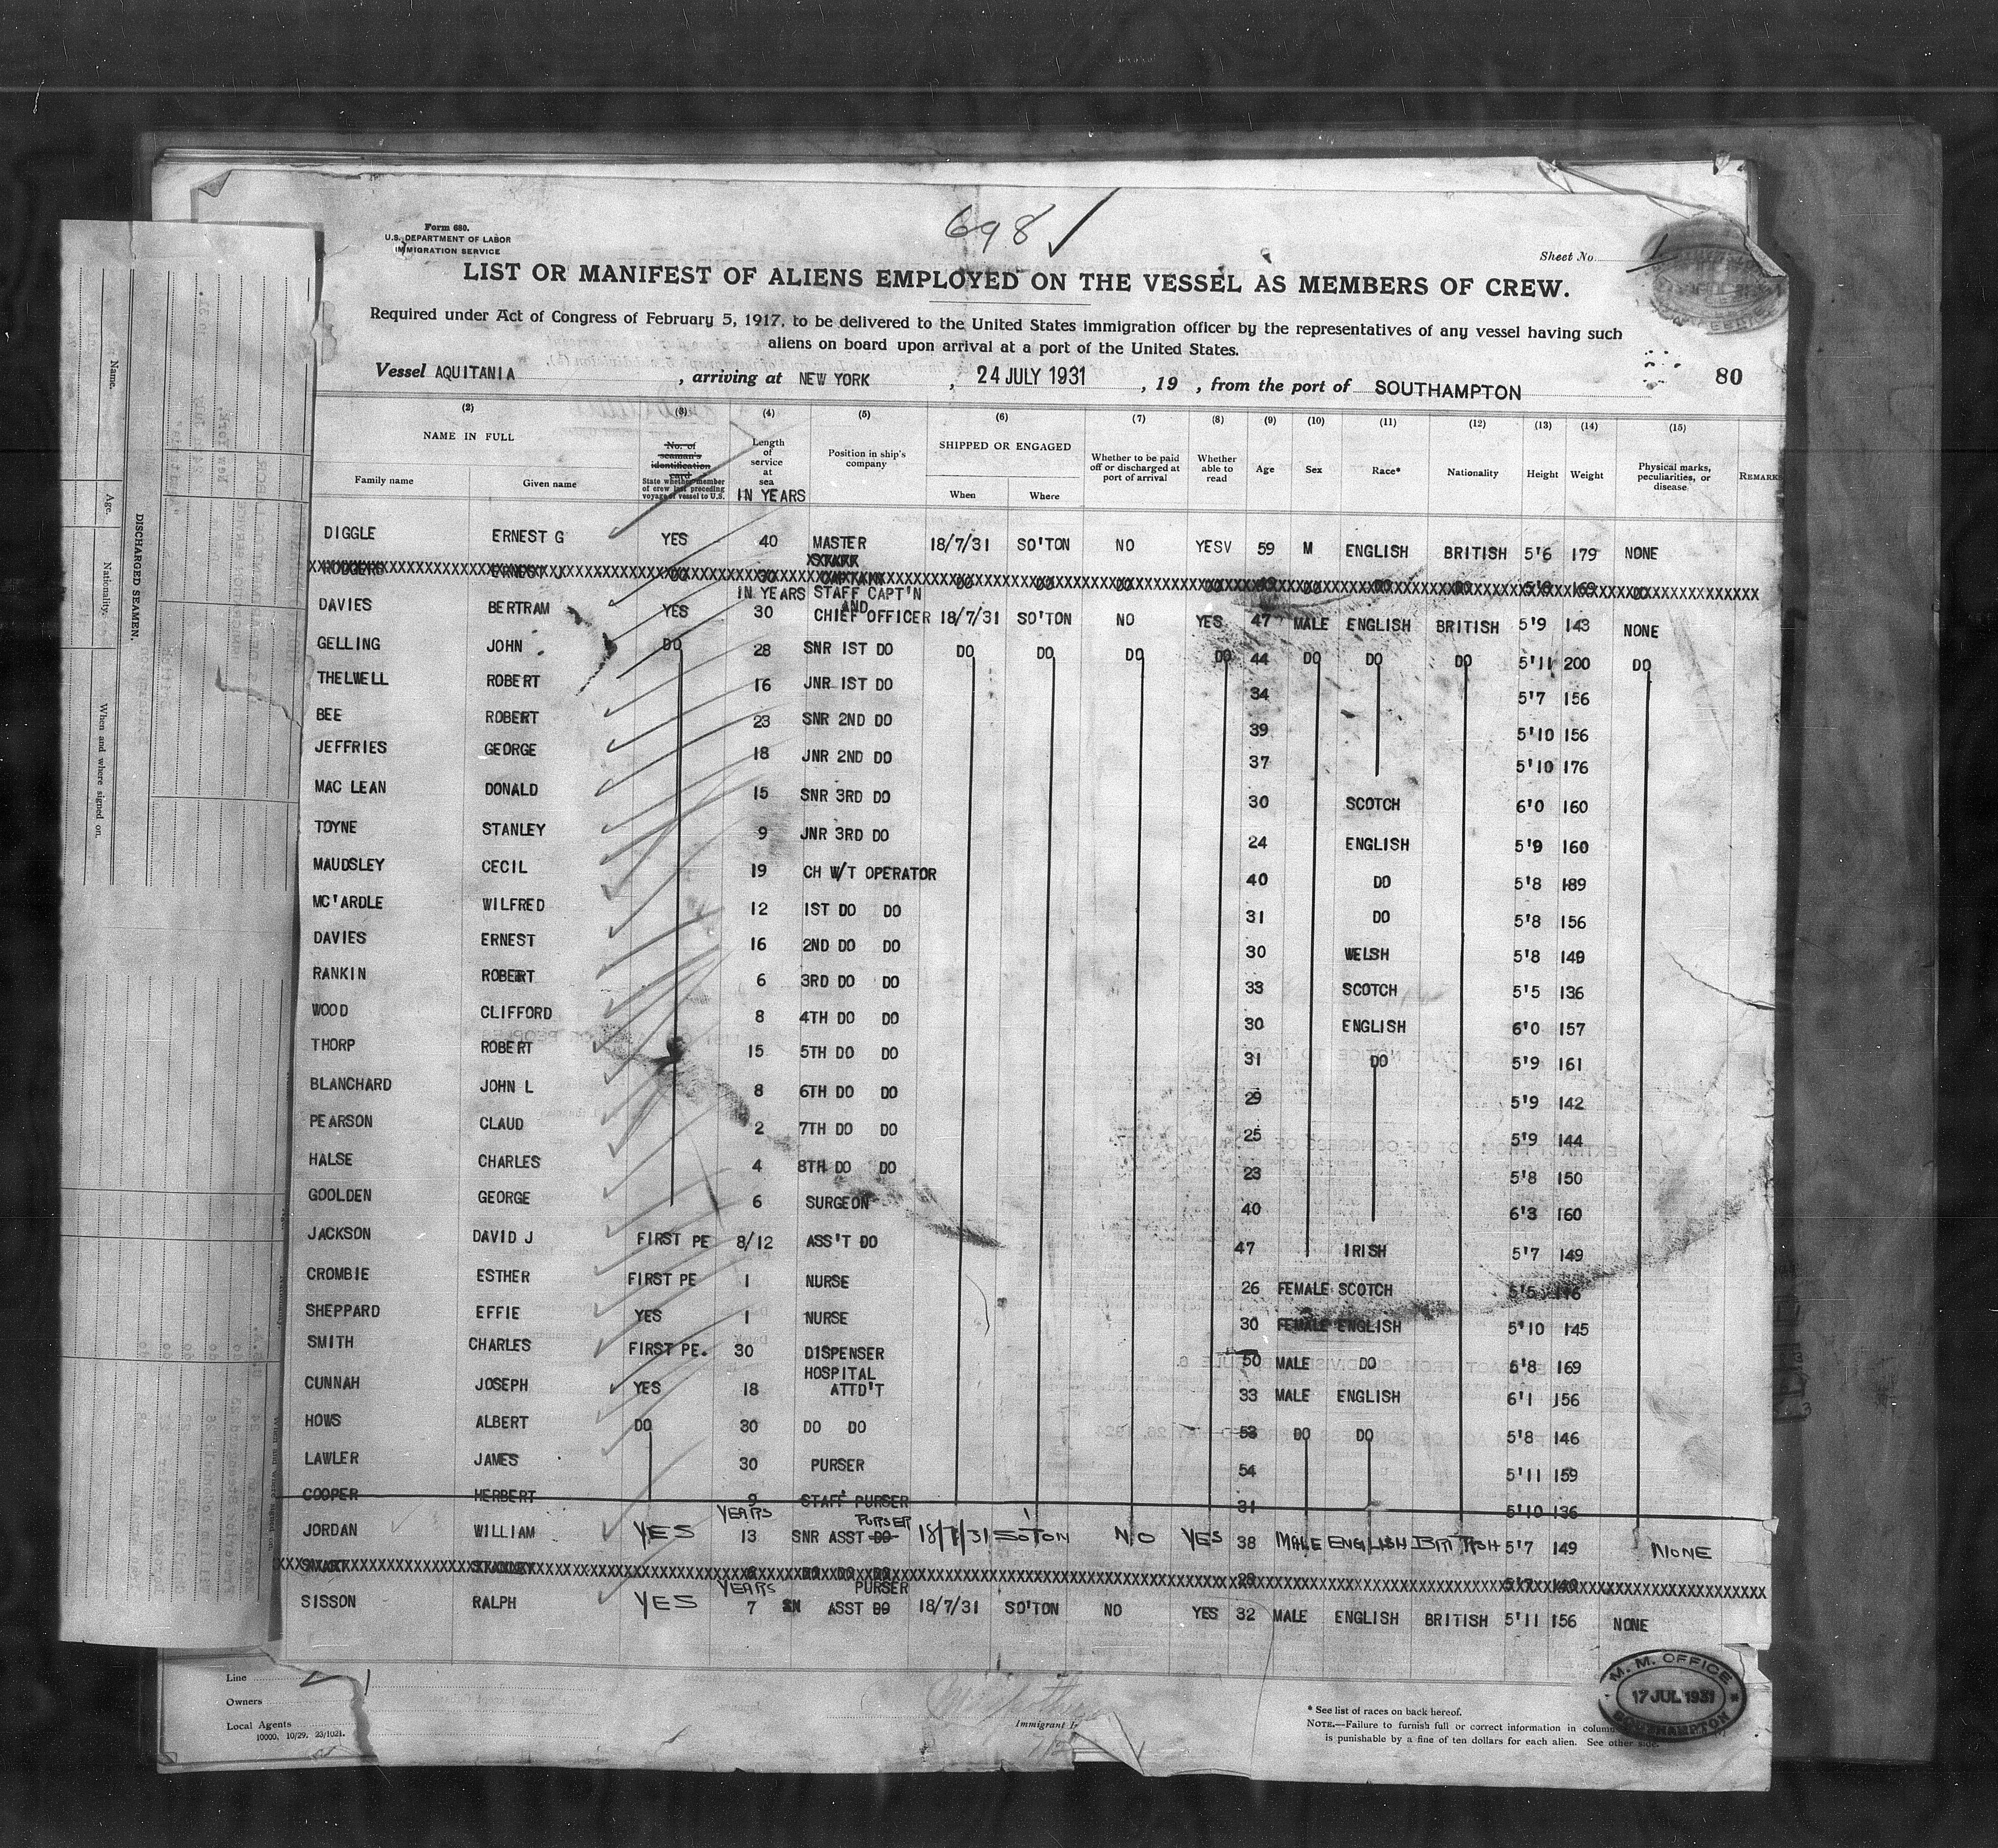 698 ✓
Form 680.
U.S. DEPARTMENT OF LABOR
IMMIGRATION SERVICE
Sheet No. 1
LIST OR MANIFEST OF ALIENS EMPLOYED ON THE VESSEL AS MEMBERS OF CREW.
Required under Act of Congress of February 5, 1917, to be delivered to the United States immigration officer by the representatives of any vessel having such
aliens on board upon arrival at a port of the United States.
80
Vessel AQUITANIA, arriving at NEW YORK, 24 JULY 1931, 19 , from the port of SOUTHAMPTON
(2) (3) (4) (5) (6) (7) (8) (9) (10) (11) (12) (13) (14) (15)
NAME IN FULL
Family name Given name
No. of seaman's identification card
State whether member of crew last preceding voyage of vessel to U.S.
Length of service at sea
IN YEARS
Position in ship's company
SHIPPED OR ENGAGED
When Where
Whether to be paid off or discharged at port of arrival
Whether able to read
Age Sex Race* Nationality Height Weight
Physical marks, peculiarities, or disease
REMARKS
DIGGLE ERNEST G YES 40 MASTER 18/7/31 SO'TON NO YESV 59 M ENGLISH BRITISH 5'6 179 NONE
RODGERS ERNEST J DO 30 STAFF CAPTAIN DO DO DO DO DO DO DO 169 DO
IN YEARS STAFF CAPT'N
DAVIES BERTRAM YES 30 AND CHIEF OFFICER 18/7/31 SO'TON NO YES 47 MALE ENGLISH BRITISH 5'9 143 NONE
GELLING JOHN DO 28 SNR 1ST DO DO DO DO DO 44 DO DO DO 5'11 200 DO
THELWELL ROBERT 16 JNR 1ST DO 34 5'7 156
BEE ROBERT 23 SNR 2ND DO 39 5'10 156
JEFFRIES GEORGE 18 JNR 2ND DO 37 5'10 176
MAC LEAN DONALD 15 SNR 3RD DO 30 SCOTCH 6'0 160
TOYNE STANLEY 9 JNR 3RD DO 24 ENGLISH 5'9 160
MAUDSLEY CECIL 19 CH W/T OPERATOR 40 DO 5'8 189
MC'ARDLE WILFRED 12 1ST DO DO 31 DO 5'8 156
DAVIES ERNEST 16 2ND DO DO 30 WELSH 5'8 149
RANKIN ROBERT 6 3RD DO DO 33 SCOTCH 5'5 136
WOOD CLIFFORD 8 4TH DO DO 30 ENGLISH 6'0 157
THORP ROBERT 15 5TH DO DO 31 DO 5'9 161
BLANCHARD JOHN L 8 6TH DO DO 29 5'9 142
PEARSON CLAUD 2 7TH DO DO 25 5'9 144
HALSE CHARLES 4 8TH DO DO 23 5'8 150
GOOLDEN GEORGE 6 SURGEON 40 6'3 160
JACKSON DAVID J FIRST PE 8/12 ASS'T DO 47 IRISH 5'7 149
CROMBIE ESTHER FIRST PE 1 NURSE 26 FEMALE SCOTCH 5'5 116
SHEPPARD EFFIE YES 1 NURSE 30 FEMALE ENGLISH 5'10 145
SMITH CHARLES FIRST PE. 30 DISPENSER 50 MALE DO 5'8 169
CUNNAH JOSEPH YES 18 HOSPITAL ATTD'T 33 MALE ENGLISH 6'1 156
HOWS ALBERT DO 30 DO DO 53 DO DO 5'8 146
LAWLER JAMES 30 PURSER 54 5'11 159
COOPER HERBERT 9 STAFF PURSER 31 5'10 136
JORDAN WILLIAM YES YEARS 13 SNR ASST DO PURSER 18/7/31 SO'TON NO YES 38 MALE ENGLISH BRITISH 5'7 149 NONE
SMART STANLEY DO DO DO 5'7
SISSON RALPH YES YEARS 7 ASST DO PURSER 18/7/31 SO'TON NO YES 32 MALE ENGLISH BRITISH 5'11 156 NONE
Line
Owners
Local Agents
10000, 10/29. 23/1021.
Immigrant I
* See list of races on back hereof.
NOTE.—Failure to furnish full or correct information in colum
is punishable by a fine of ten dollars for each alien. See other side.
M. M. OFFICE
17 JUL 1931
SOUTHAMPTON
DISCHARGED SEAMEN.
Name. Age. Nationality. When and where signed on.